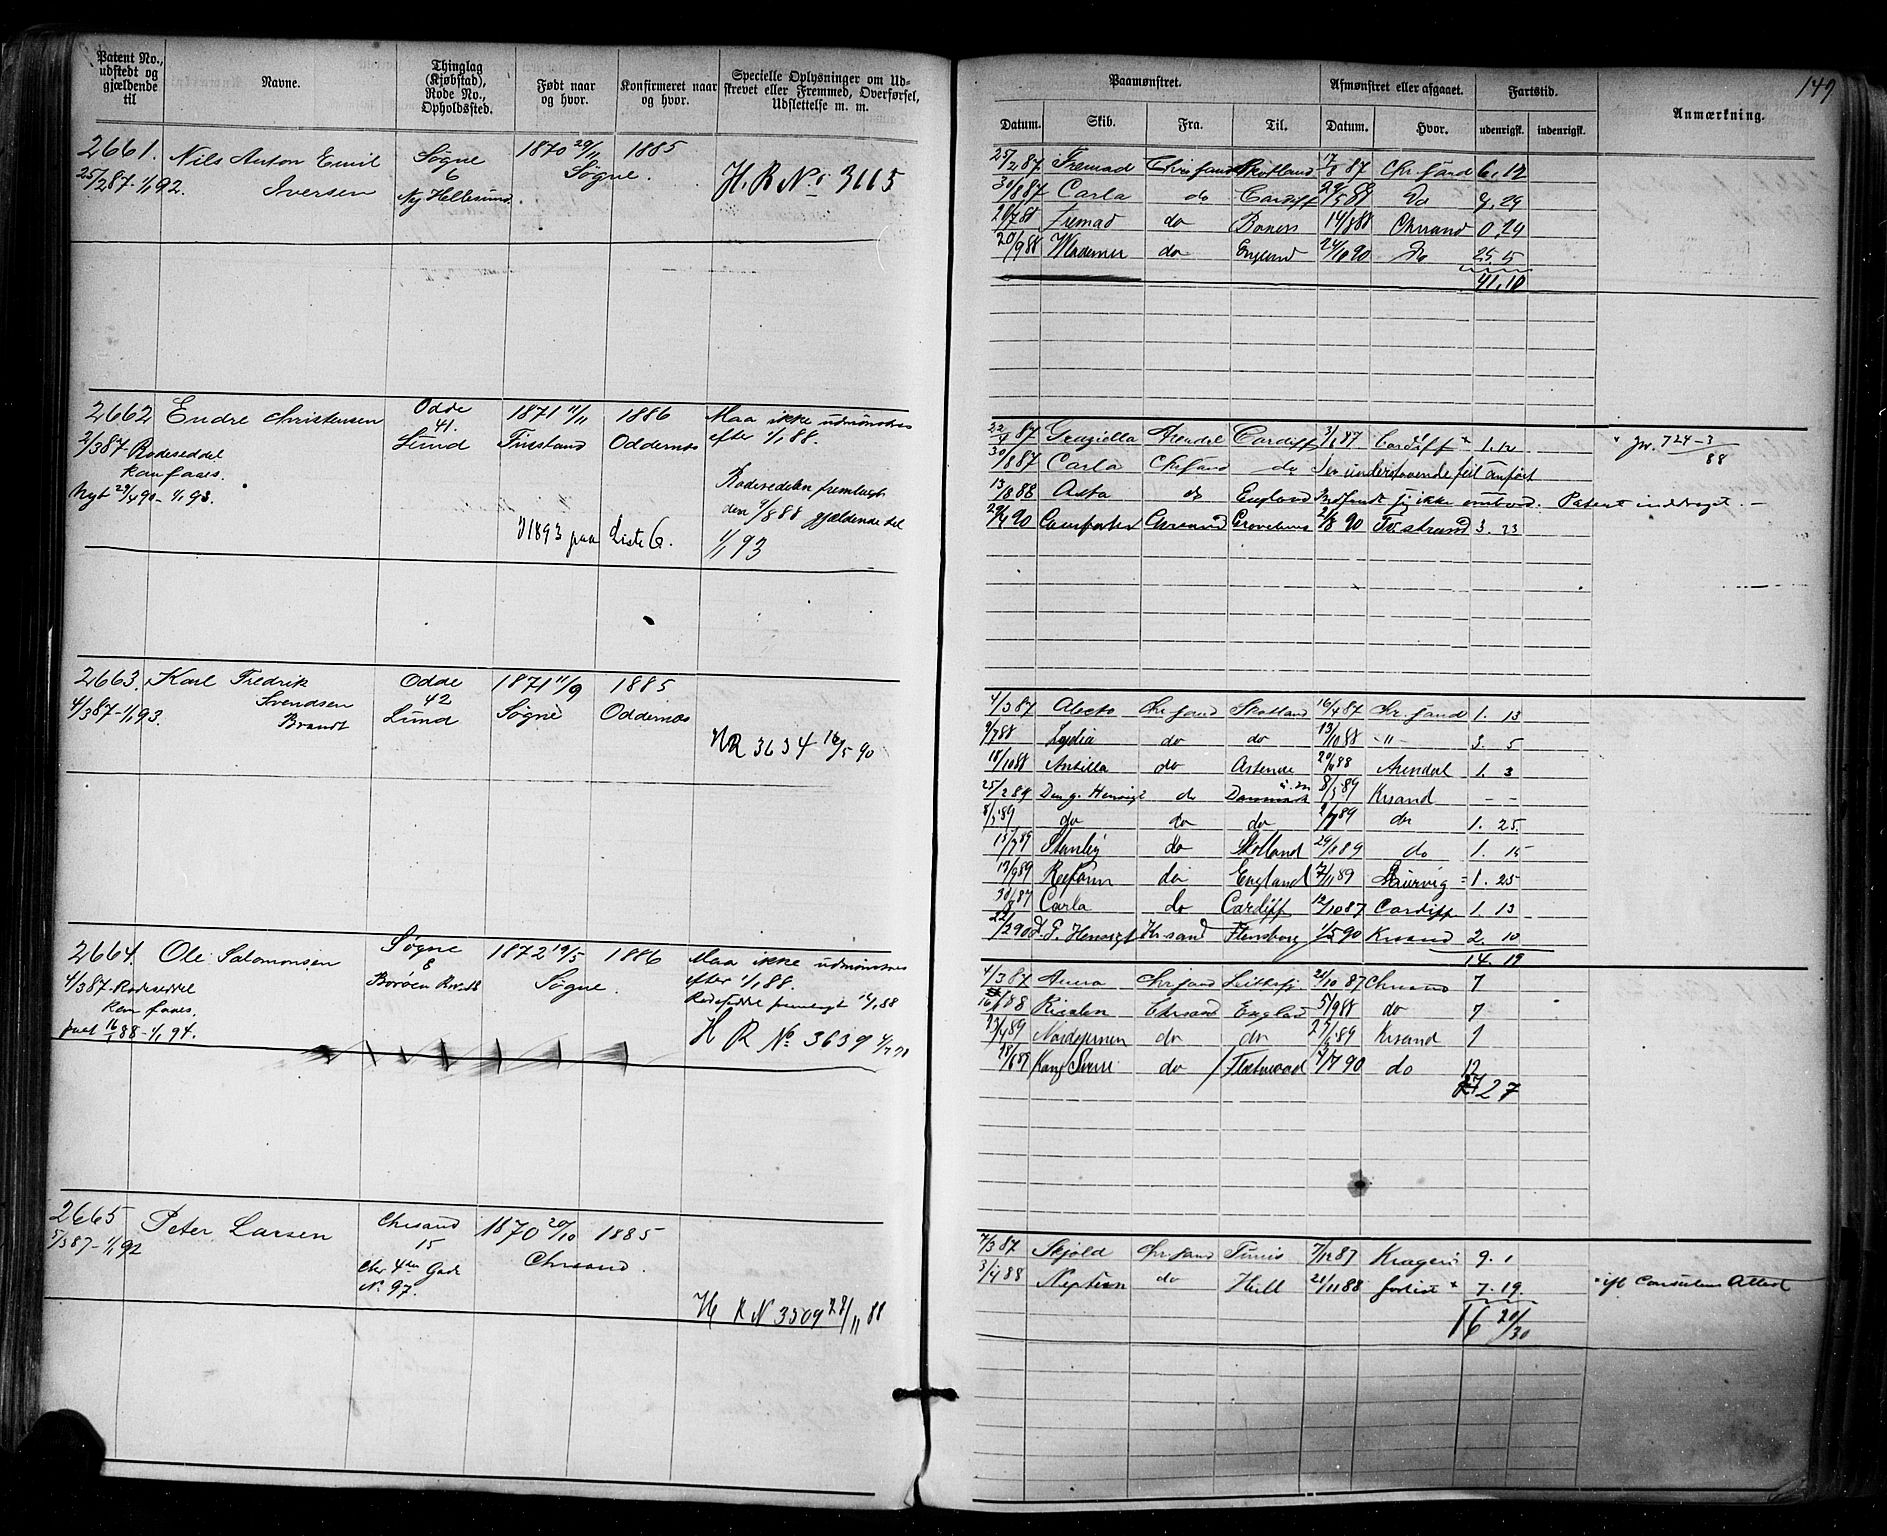 149
Patent No., udstedt og gjældende til
Navne.
Thinglag (Kjøbstad), Rode No., Opholdssted.
Født naar og hvor.
Konfirmeret naar og hvor.
Specielle Oplysninger om Udskrevet eller Fremmed, Overførsel, Udslettelse m. m.
Paamønstret.
Afmønstret eller afgaaet.
Fartstid.
Anmærkning.
Datum. Skib. Fra. Til. Datum. Hvor. udenrigsk. indenrigsk.
2661. Nils Anton Emil Søgne 1870 29/11 1885
25/2 87 - 1/1 92. Iversen 6 Søgne. H. R No 3115
Ny Hellesund.
25/2 87 Fremad Chrissand Skotland 87 Chr.sand 6. 12
30/8 87 Carla do Cardiff 88 Do 9. 29
88 Fremad do Boness 14/8 88 Chrsand 0. 29
20/9 88 do England 24/10 90 Do 25. 5
41. 10
2662 Endre Christensen Odde 1871 11/11 1886 Maa ikke udmønstres
2/3 87 Rodeseddel 41. Lund Finsland Oddernes efter 1/1 88.
kan faaes. Rodesedelen fremlagt
Nyt 29/4 90 - 1/1 93. den 9/8 88 gjældende til
1893 paa Liste 6. 1/1 93
22/4 87 Graziella Arendal Cardiff 3/8 87 Cardiff × 1. 12 × jvr. 724-3/88
30/8 87 Carla Chr.sand do Se understaaende feil anført
13/8 88 Asta do England Indfandt sig ikke ombord. Patent inddraget. -
29/4 90 90 Tvedestrand 3. 23
2663. Karl Fredrik Odde 1871 11/9 1885
4/3 87 - 1/1 93. Svendsen Brandt 42 Lund Søgne Oddernes
HR 3634 16/5 90
4/3 87 Alecto Chr.sand Skotland 87 Chr.sand 1. 13
9/7 88 Lydia do do 13/10 88 -"- 3. 5
18/10 88 Antilla do Ostende 88 Arendal 1. 3
25/2 89 do Danmark 8/5 89 Krsand - -
8/5 89 do do do 89 do 1. 25.
15/7 89 Stanley do Skotland 29/8 89 do 1. 15
13/9 89 Reform do England 7/11 89 Laurvig 1. 25
30/8 87 Carla do Cardiff 12/10 87 Cardiff 1. 13
90 Kr.sand Flensborg 1/5 90 Krsand 2. 10
14. 19
2664. Ole Salomonsen Søgne 1872 19/5 1886 Maa ikke udmønstres
4/3 87 - Rodeseddel 8 Søgne. efter 1/1 88.
kan faaes. Borøen Rodeseddel fremlagt 16/1 88
16/1 88 - 1/1 94. H R No 3639
4/3 87 Anna Chr.sand 21/10 87 Chrsand 7
16/1 88 Chrsand England 5/9 88 do 7
89 do do 89 Krsand 1
Kong Sverre do Fleetwood 90 do 12
27
2665 Peter Larsen Chrsand 1870 20/10 1885
5/3 87 - 1/1 92 15 Chrsand.
4de Gade
N. 97. H R N 3509 28/11 88
7/3 87 Skjold Chr.sand Tunis 7/12 87 Kragerø 9. 1
3/4 88 Neptun do Hull 21/11 88 forlist × 7. 19. × ifl Consulens Attest
16 20/30